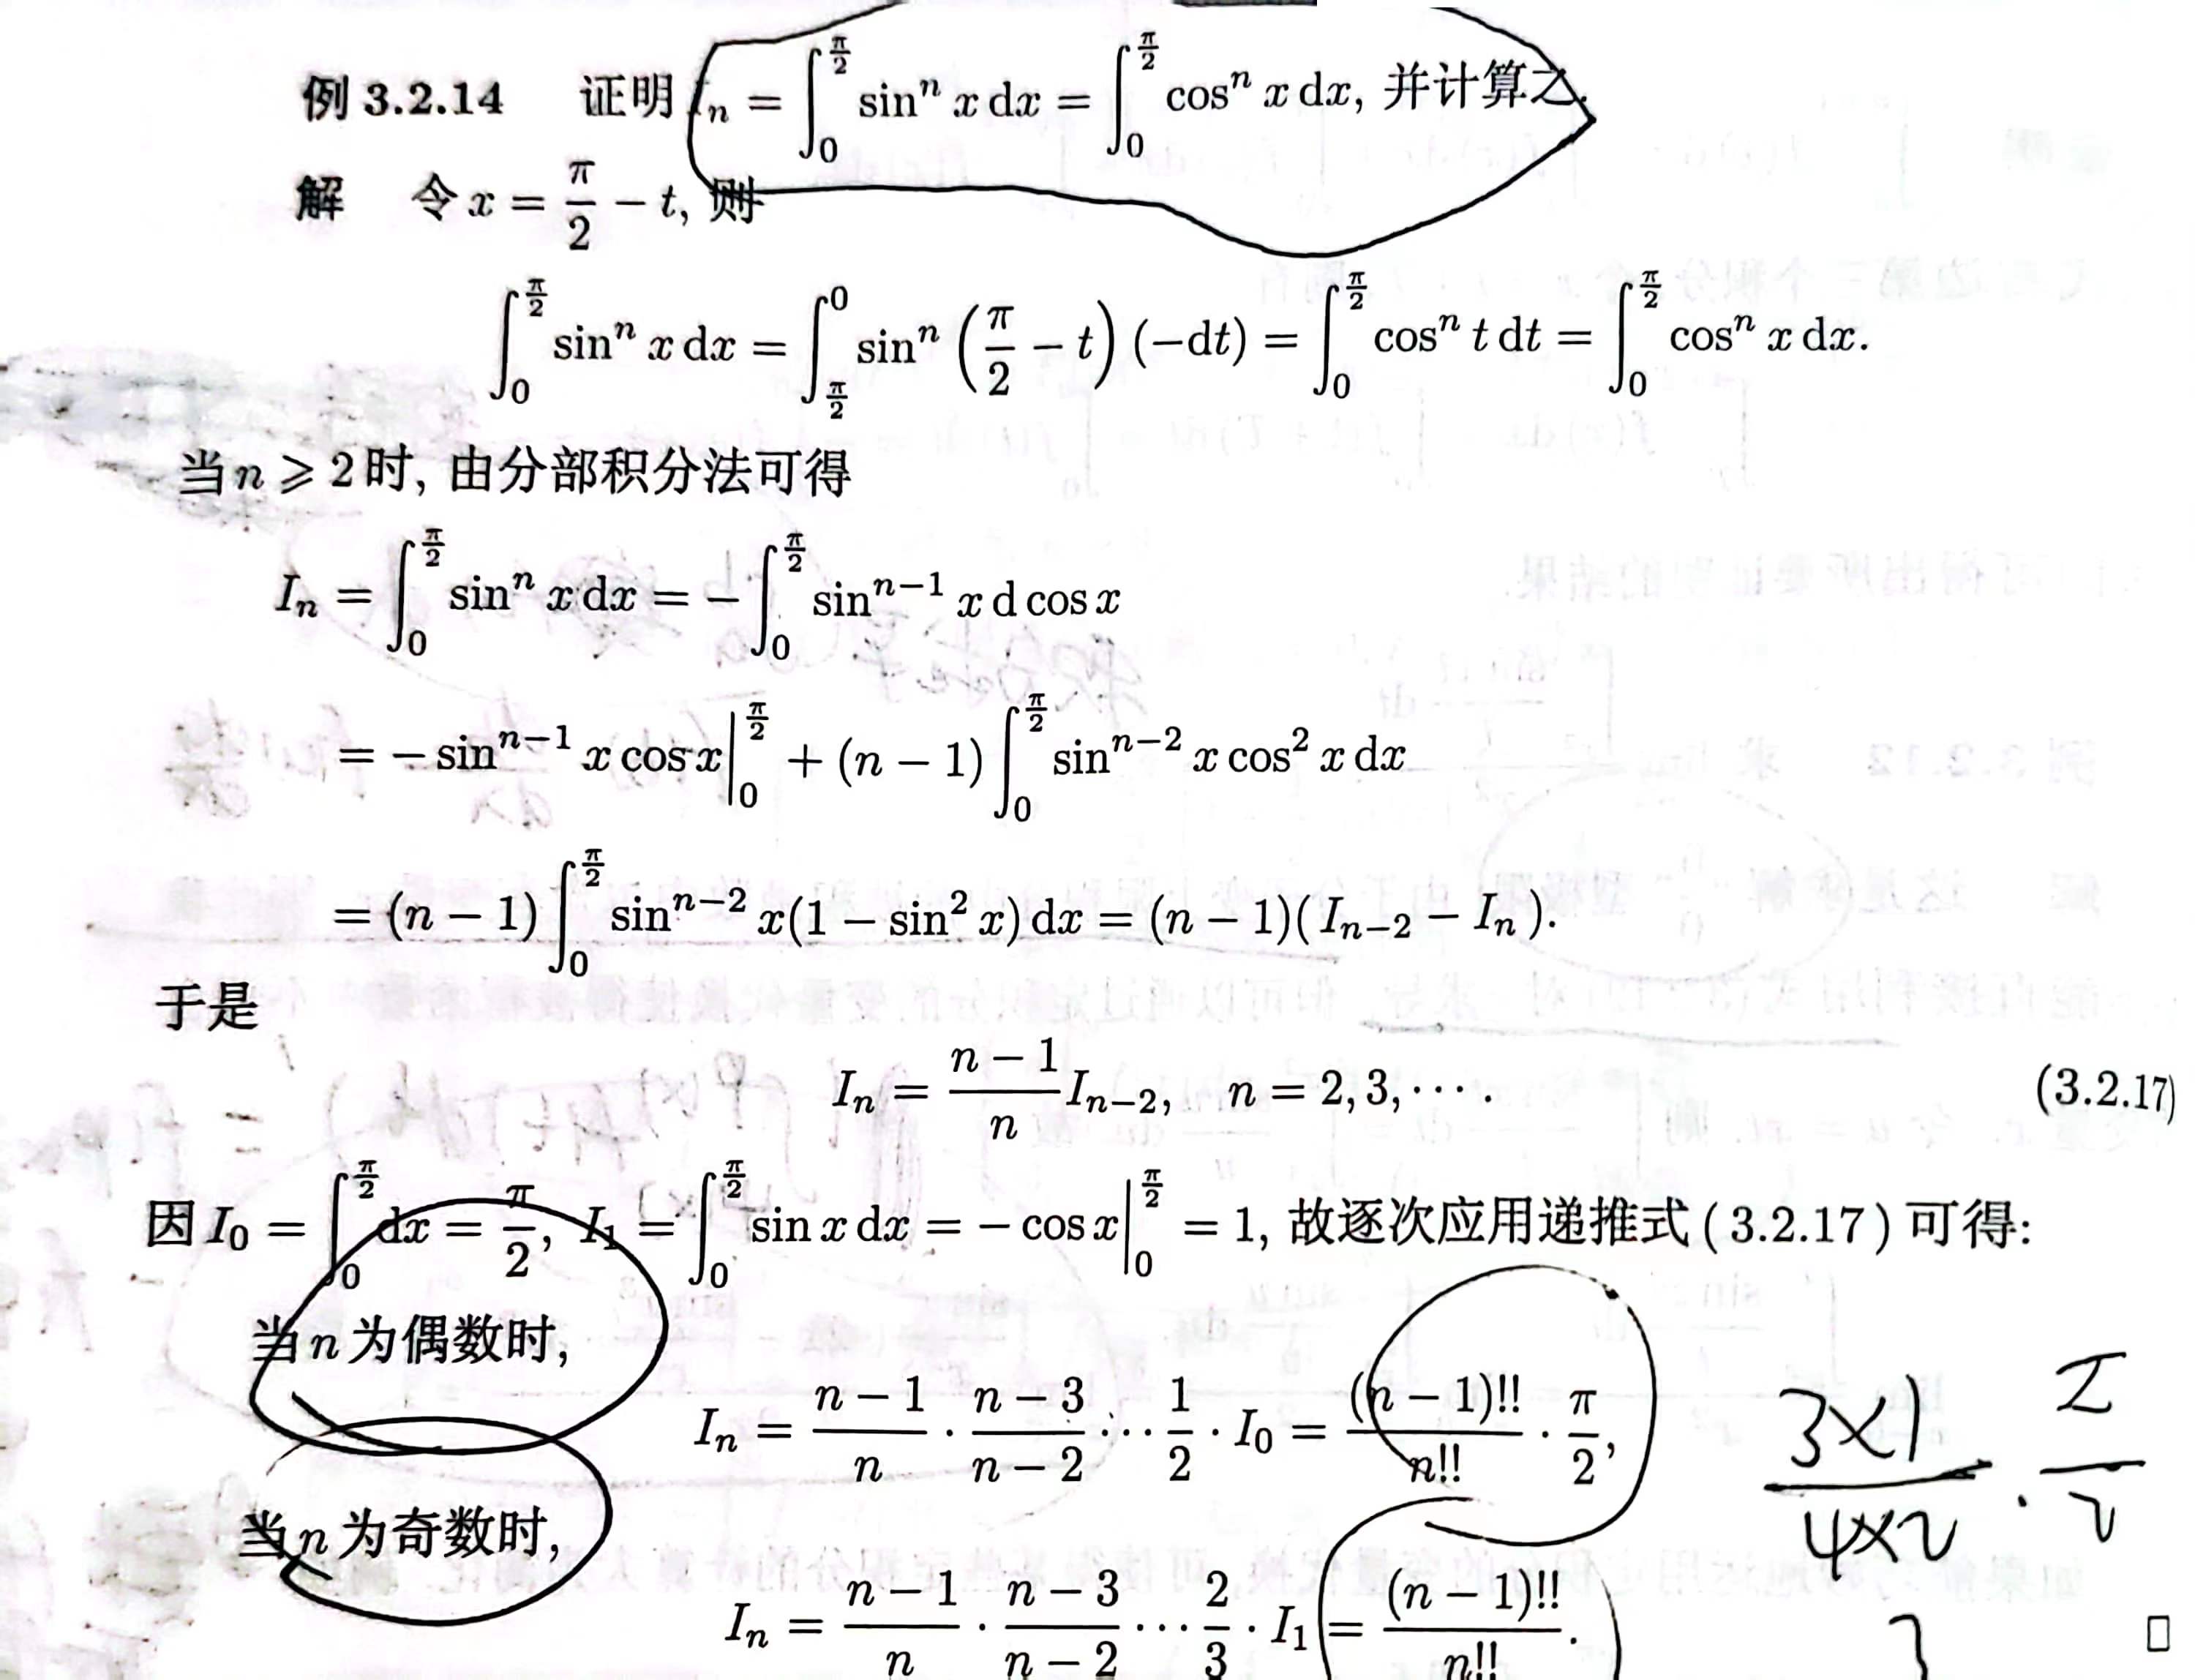 例 3.2.14 证明 I_n = ∫_0^{π/2} sin^n x dx = ∫_0^{π/2} cos^n x dx, 并计算之.
解 令 x = π/2 − t, 则
∫_0^{π/2} sin^n x dx = ∫_{π/2}^0 sin^n (π/2 − t) (−dt) = ∫_0^{π/2} cos^n t dt = ∫_0^{π/2} cos^n x dx.
当 n ⩾ 2 时, 由分部积分法可得
I_n = ∫_0^{π/2} sin^n x dx = − ∫_0^{π/2} sin^{n−1} x d cos x
= − sin^{n−1} x cos x |_0^{π/2} + (n − 1) ∫_0^{π/2} sin^{n−2} x cos^2 x dx
= (n − 1) ∫_0^{π/2} sin^{n−2} x(1 − sin^2 x) dx = (n − 1)(I_{n−2} − I_n).
于是
I_n = \frac{n − 1}{n} I_{n−2}, n = 2, 3, ⋯. (3.2.17)
因 I_0 = ∫_0^{π/2} dx = π/2, I_1 = ∫_0^{π/2} sin x dx = − cos x |_0^{π/2} = 1, 故逐次应用递推式 (3.2.17) 可得:
当 n 为偶数时,
I_n = \frac{n − 1}{n} · \frac{n − 3}{n − 2} ⋯ \frac{1}{2} · I_0 = \frac{(n − 1)!!}{n!!} · \frac{π}{2}, \frac{3×1}{4×2} · \frac{π}{2}
当 n 为奇数时,
I_n = \frac{n − 1}{n} · \frac{n − 3}{n − 2} ⋯ \frac{2}{3} · I_1 = \frac{(n − 1)!!}{n!!}. □